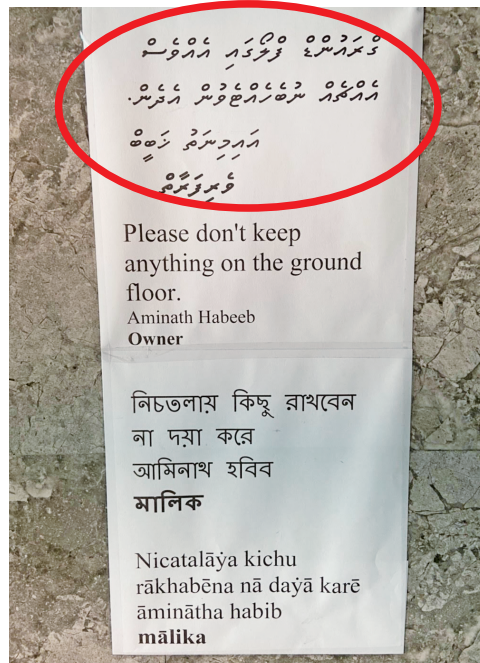 ގްރައުންޑް ފްލޯގައި އެއްވެސް
އެއްޗެއް ނުބެހެއްޓެވުން އެދެން.
އައިމިނަތު ޚަބީބް
ވެރިފަރާތް
Please don't keep
anything on the ground
floor.
Aminath Habeeb
Owner
নিচতলায় কিছু রাখবেন
না দয়া করে
আমিনাথ হবিব
মালিক
Nicatalāẏa kichu
rākhabēna nā daẏā karē
āminātha habib
mālika